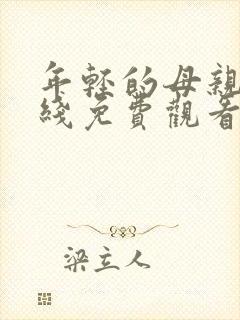 年轻的母亲
綫免費觀看
梁立人